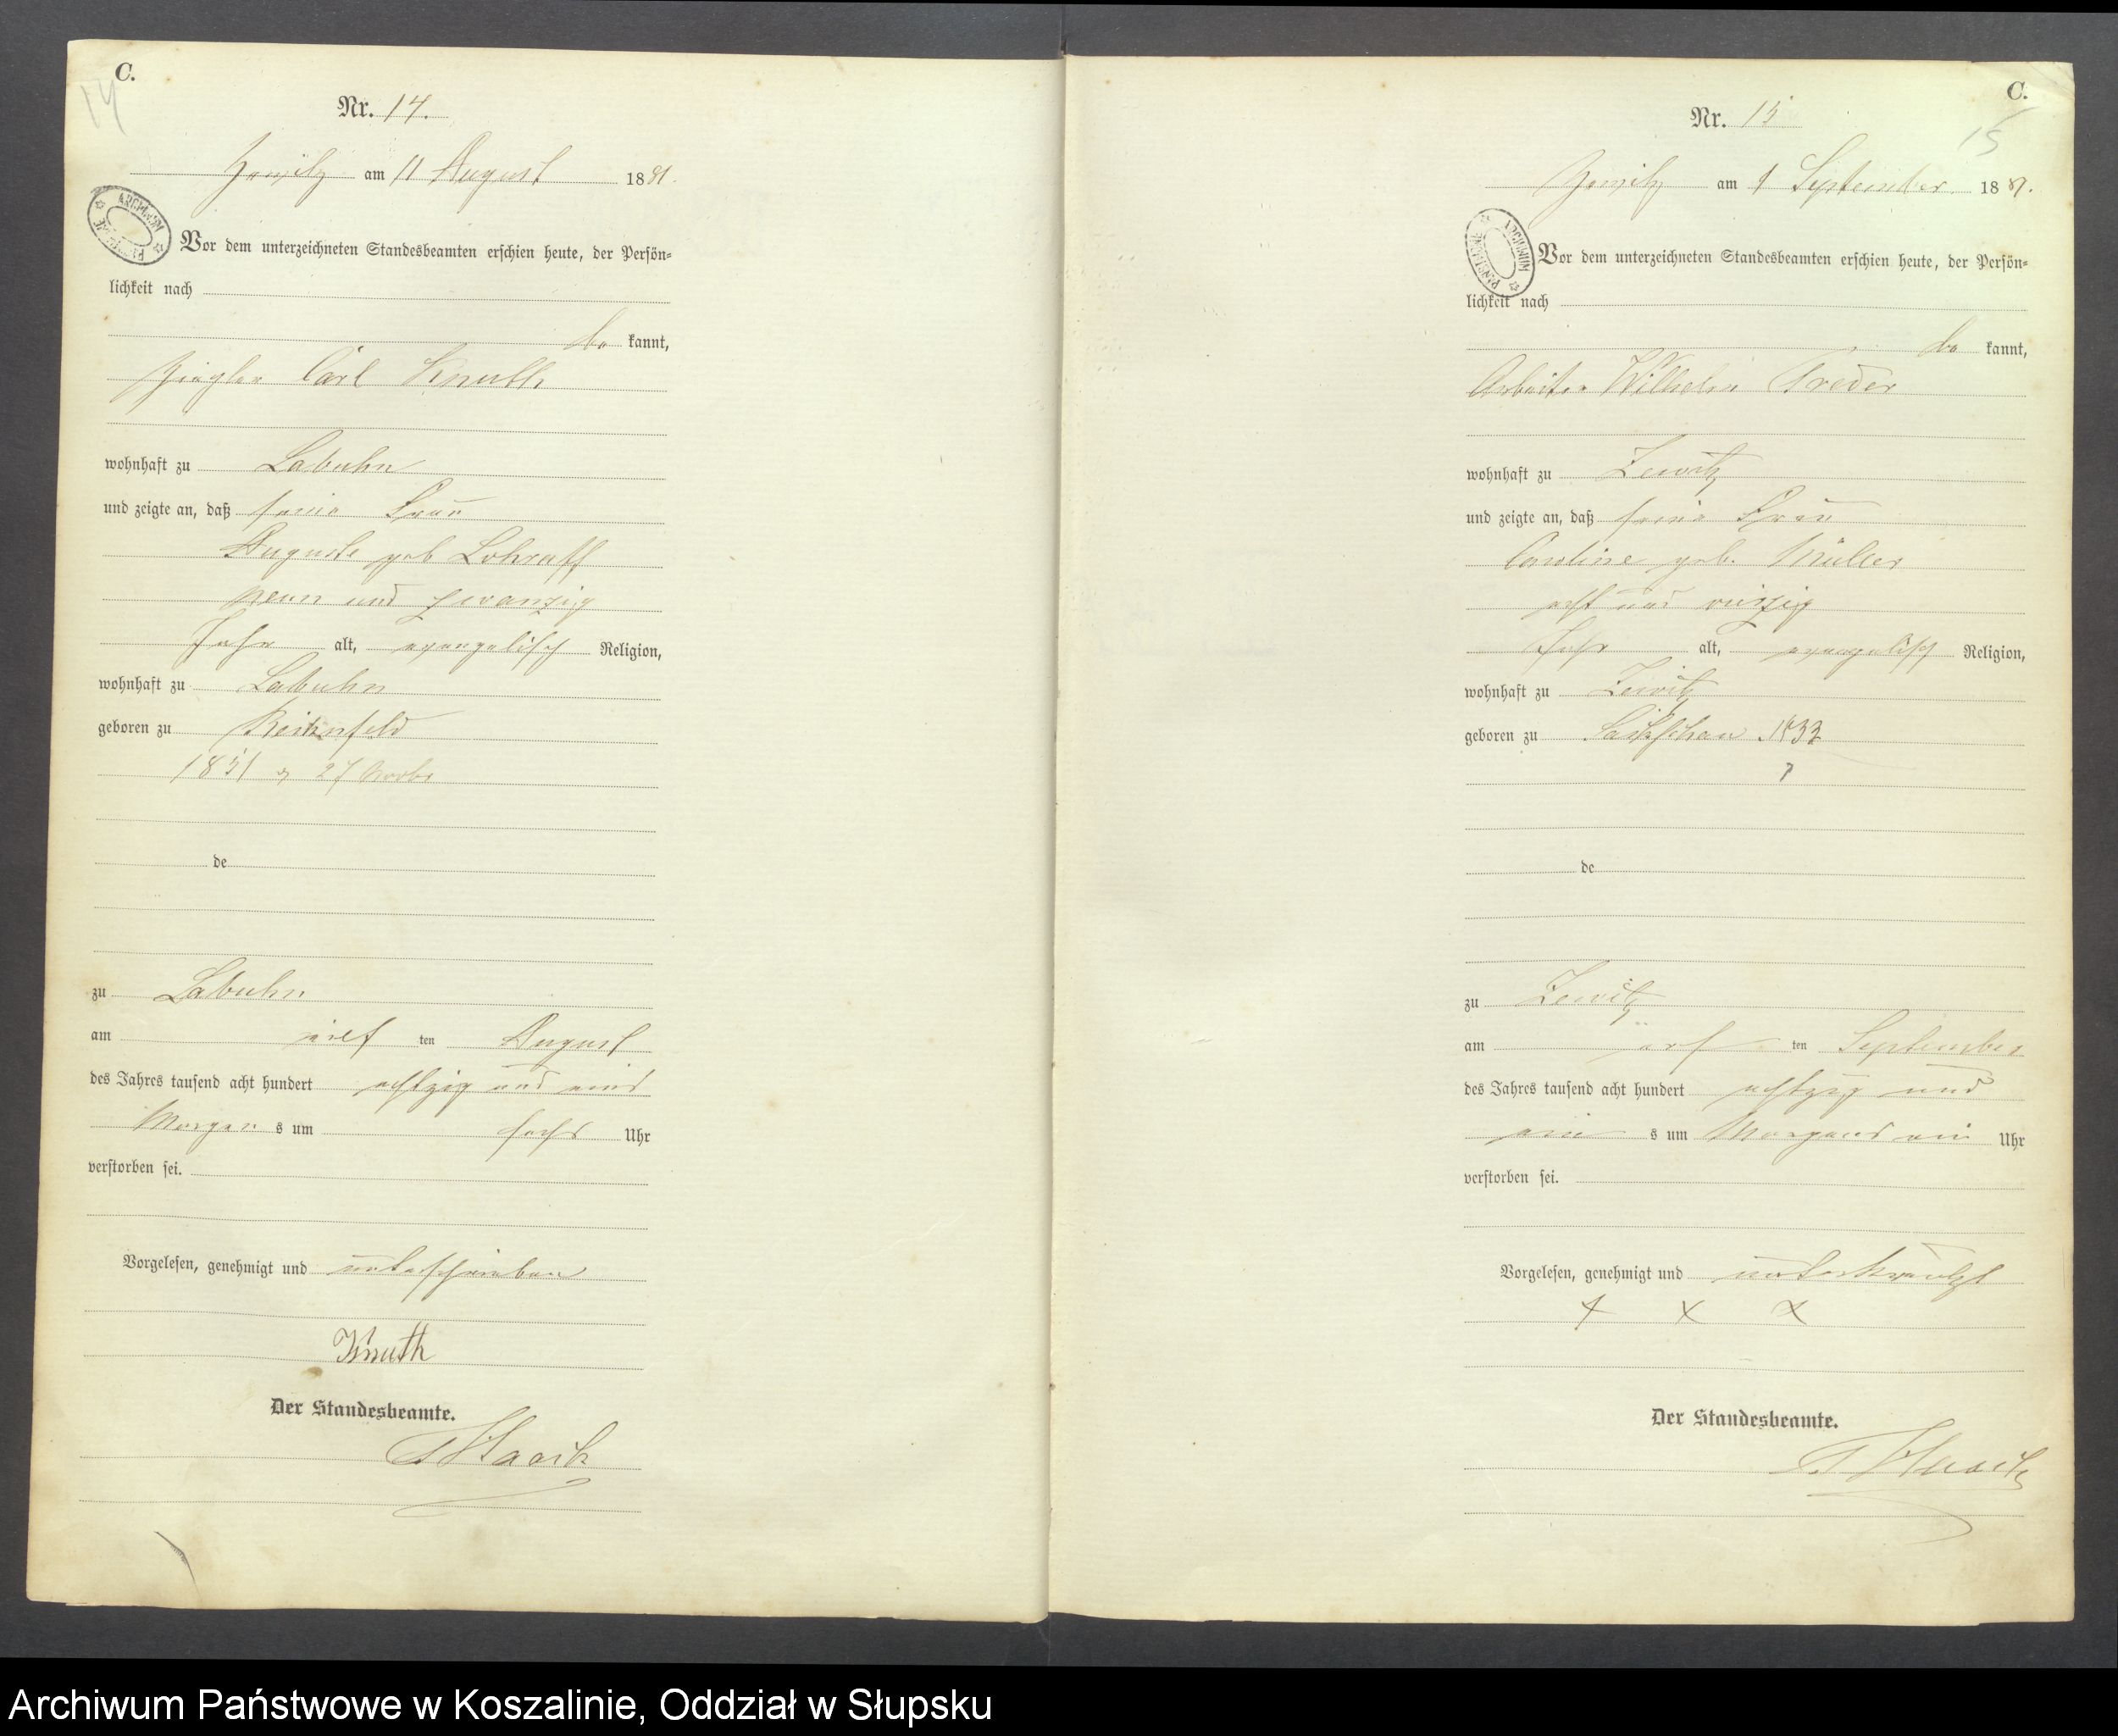 C.
14
Nr. 14.
am 11 August 1881.
Vor dem unterzeichneten Standesbeamten erschien heute, der Persön-
lichkeit nach
be kannt,
Ziegler Carl Knuth
wohnhaft zu Labuhn
und zeigte an, daß seine Frau
Auguste geb
neun und zwanzig
Jahr alt, evangelisch Religion,
wohnhaft zu Labuhn
geboren zu
1851 27 Novbr
de
zu Labuhn
am elf ten August
des Jahres tausend acht hundert achtzig und eins
Morgen s um sechs Uhr
verstorben sei.
Vorgelesen, genehmigt und unterschrieben
Knuth
Der Standesbeamte.
C.
15
Nr. 15
am 1 September 1881.
Vor dem unterzeichneten Standesbeamten erschien heute, der Persön-
lichkeit nach
be kannt,
Arbeiter Wilhelm Treder
wohnhaft zu Zewitz
und zeigte an, daß seine Frau
Caroline geb. Müller
acht und vierzig
Jahr alt, evangelisch Religion,
wohnhaft zu Zewitz
geboren zu 1833
?
de
zu Zewitz
am ten September
des Jahres tausend acht hundert achtzig und
ein s um Morgens ein Uhr
verstorben sei.
Vorgelesen, genehmigt und unterkreuzt
+ x x
Der Standesbeamte.
Archiwum Państwowe w Koszalinie, Oddział w Słupsku